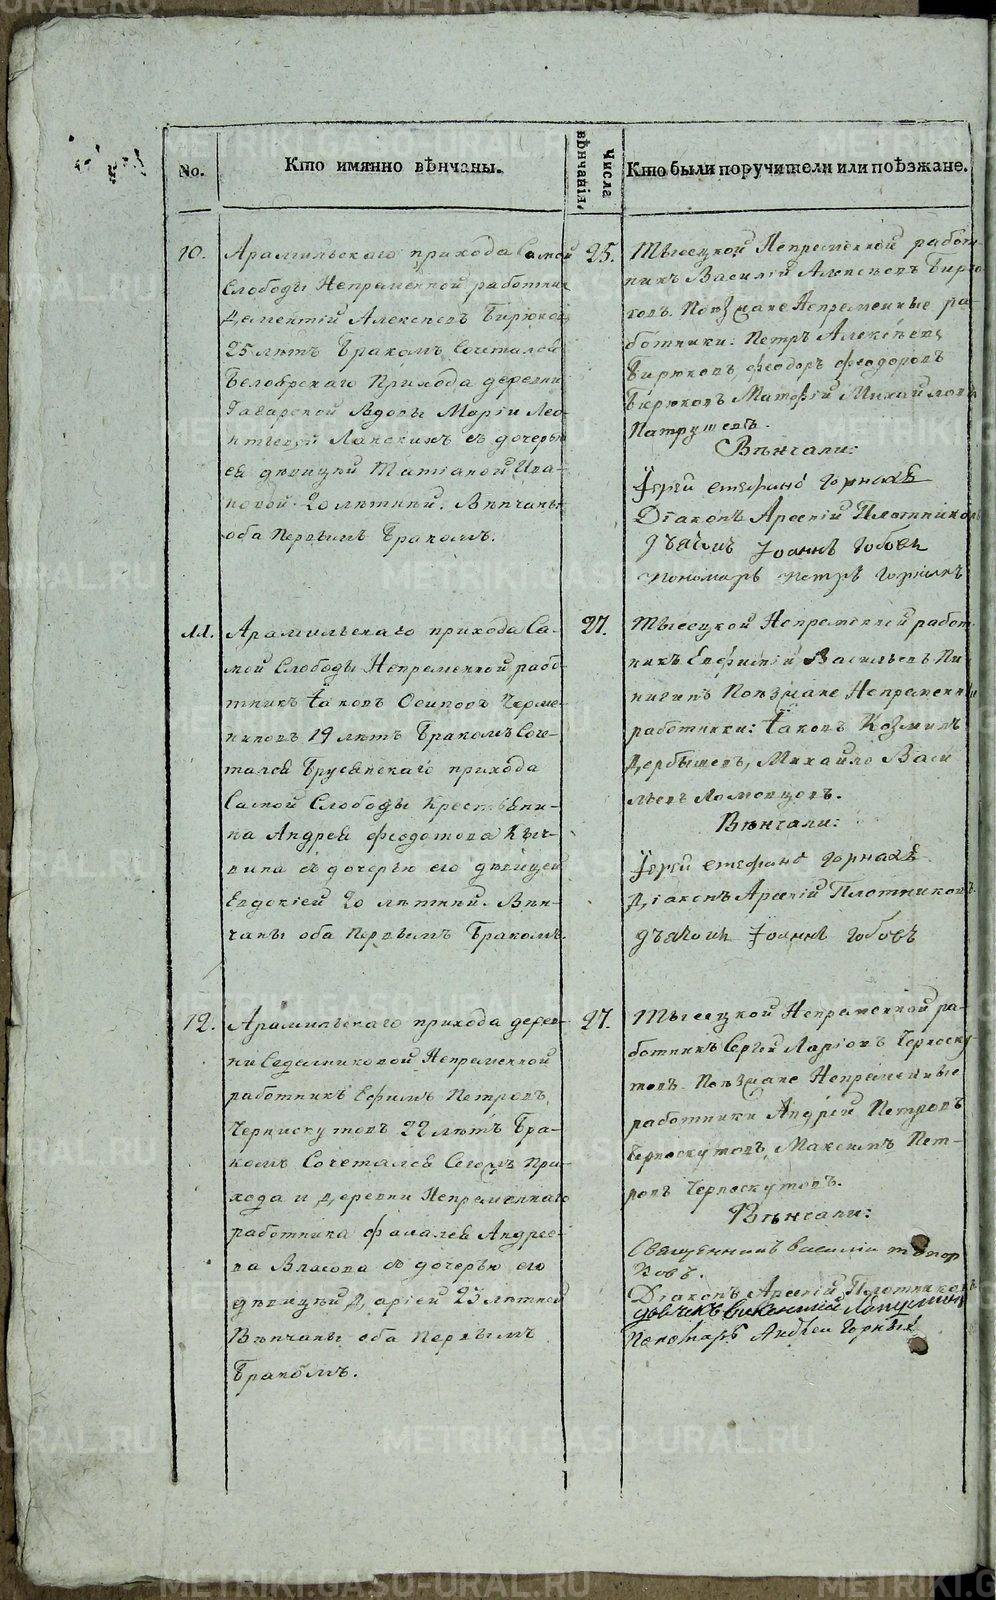 No.
Кто имянно вѣнчаны.
Числа вѣнчанія.
Кто были поручители или поѣзжане.
10.
Арамильскаго прихода Самой
Слободы Непременной работник
Дементій Алексѣевъ Бирюковъ
25 лѣтъ бракомъ сочетался
Белоярскаго прихода деревни
Гагарской вдовы Маріи Лео-
нтьевой Ланскихъ съ дочерью
ея дѣвицей Татіаной Ива-
новой 20 лѣтней. Вѣнчаны
оба первымъ бракомъ.
25.
Тысецкой Непременной работ-
никъ Василій Алексѣевъ Бирю-
ковъ. Поѣзжане Непременные ра-
ботники: Петръ Алексѣевъ
Бирюковъ, Феодоръ Феодоровъ
Бирюковъ Матфій Михайловъ
Патрушевъ.
Вѣнчали:
Іерей Стефанъ Горныхъ
Діаконъ Арсеній Плотниковъ
дьячекъ Іоаннъ
Пономарь Петръ
11.
Арамильскаго прихода Са-
мой Слободы Непременной рабо-
тникъ Іаковъ Осиповъ Черме-
никовъ 19 лѣтъ бракомъ соче-
тался Брусянскаго прихода
Самой Слободы крестьяни-
на Андрея Феодотова
съ дочерью его дѣвицей
Евдокіей 20 лѣтней. Вѣн-
чаны оба первымъ бракомъ.
27.
Тысецкой Непременной работ-
никъ Евфимій Васильевъ Пи-
нигинъ Поѣзжане Непременныи
работники: Іаковъ Козминъ
Дербышевъ, Михайло Васи
льевъ Ломовцовъ.
Вѣнчали:
Іерей Стефанъ Горныхъ
Діаконъ Арсеній Плотниковъ
дьячекъ Іоаннъ
12.
Арамильскаго прихода дерев-
ни Седельниковой Непременной
работникъ Ефимъ Петровъ
Черноскутовъ 22 лѣтъ бра-
комъ сочетался сегожъ при-
хода и деревни Непременнаго
работника Фалалея Андрее-
ва Власова съ дочерью его
дѣвицей Даріей 23 лѣтней
Вѣнчаны оба первымъ
бракомъ.
27.
Тысецкой Непременной ра-
ботникъ Сергей Ларіовъ Черноску
товъ. Поѣзжане Непременные
работники Андрей Петровъ
Черноскутовъ, Максимъ Пет-
ровъ Черноскутовъ.
Вѣнчали:
Священникъ Василій Топор
ковъ.
Діаконъ Арсеній Плотниковъ
дьячекъ
Пономарь Андрей Горныхъ
METRIKI.GASO-URAL.RU